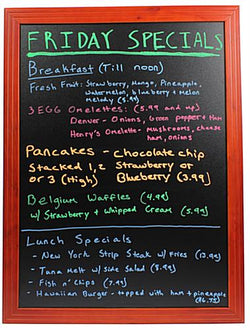 FRIDAY SPECIALS
Breakfast (Till noon)
Fresh Fruit: Strawberry, Mango, Pineapple,
Watermelon, blueberry & Melon
Melody (5.99)
3 EGG Omelettes: (5.99 and up)
Denver - Onions, Green pepper & Ham
Henry's Omelette - Mushrooms, cheese
ham, onions
Pancakes - Chocolate chip
Stacked 1, 2 Strawberry or
or 3 (High) Blueberry (3.99)
Belgium Waffles (4.99)
w/ Strawberry & Whipped Cream (5.99)
Lunch Specials
- New York Strip Steak w/ Fries (13.99)
- Tuna Melt w/ Side Salad (5.99)
- Fish n' Chips (7.99)
- Hawaiian Burger - topped with ham & pineapple